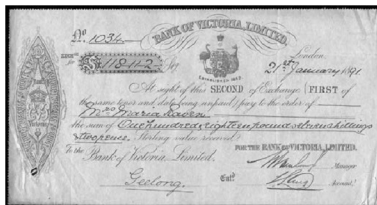 No. 1034
BANK OF VICTORIA, LIMITED.
£118.11.2
London
21st January 1891
At sight of this SECOND of Exchange (FIRST of
the same tenor and date being unpaid) pay to the order of
Mrs Maria
the sum of One hundred & eighteen pounds eleven shillings
& twopence Sterling value received.
To the Bank of Victoria Limited,
Geelong.
FOR THE BANK OF VICTORIA, LIMITED.
Manager
Entd
Accountt